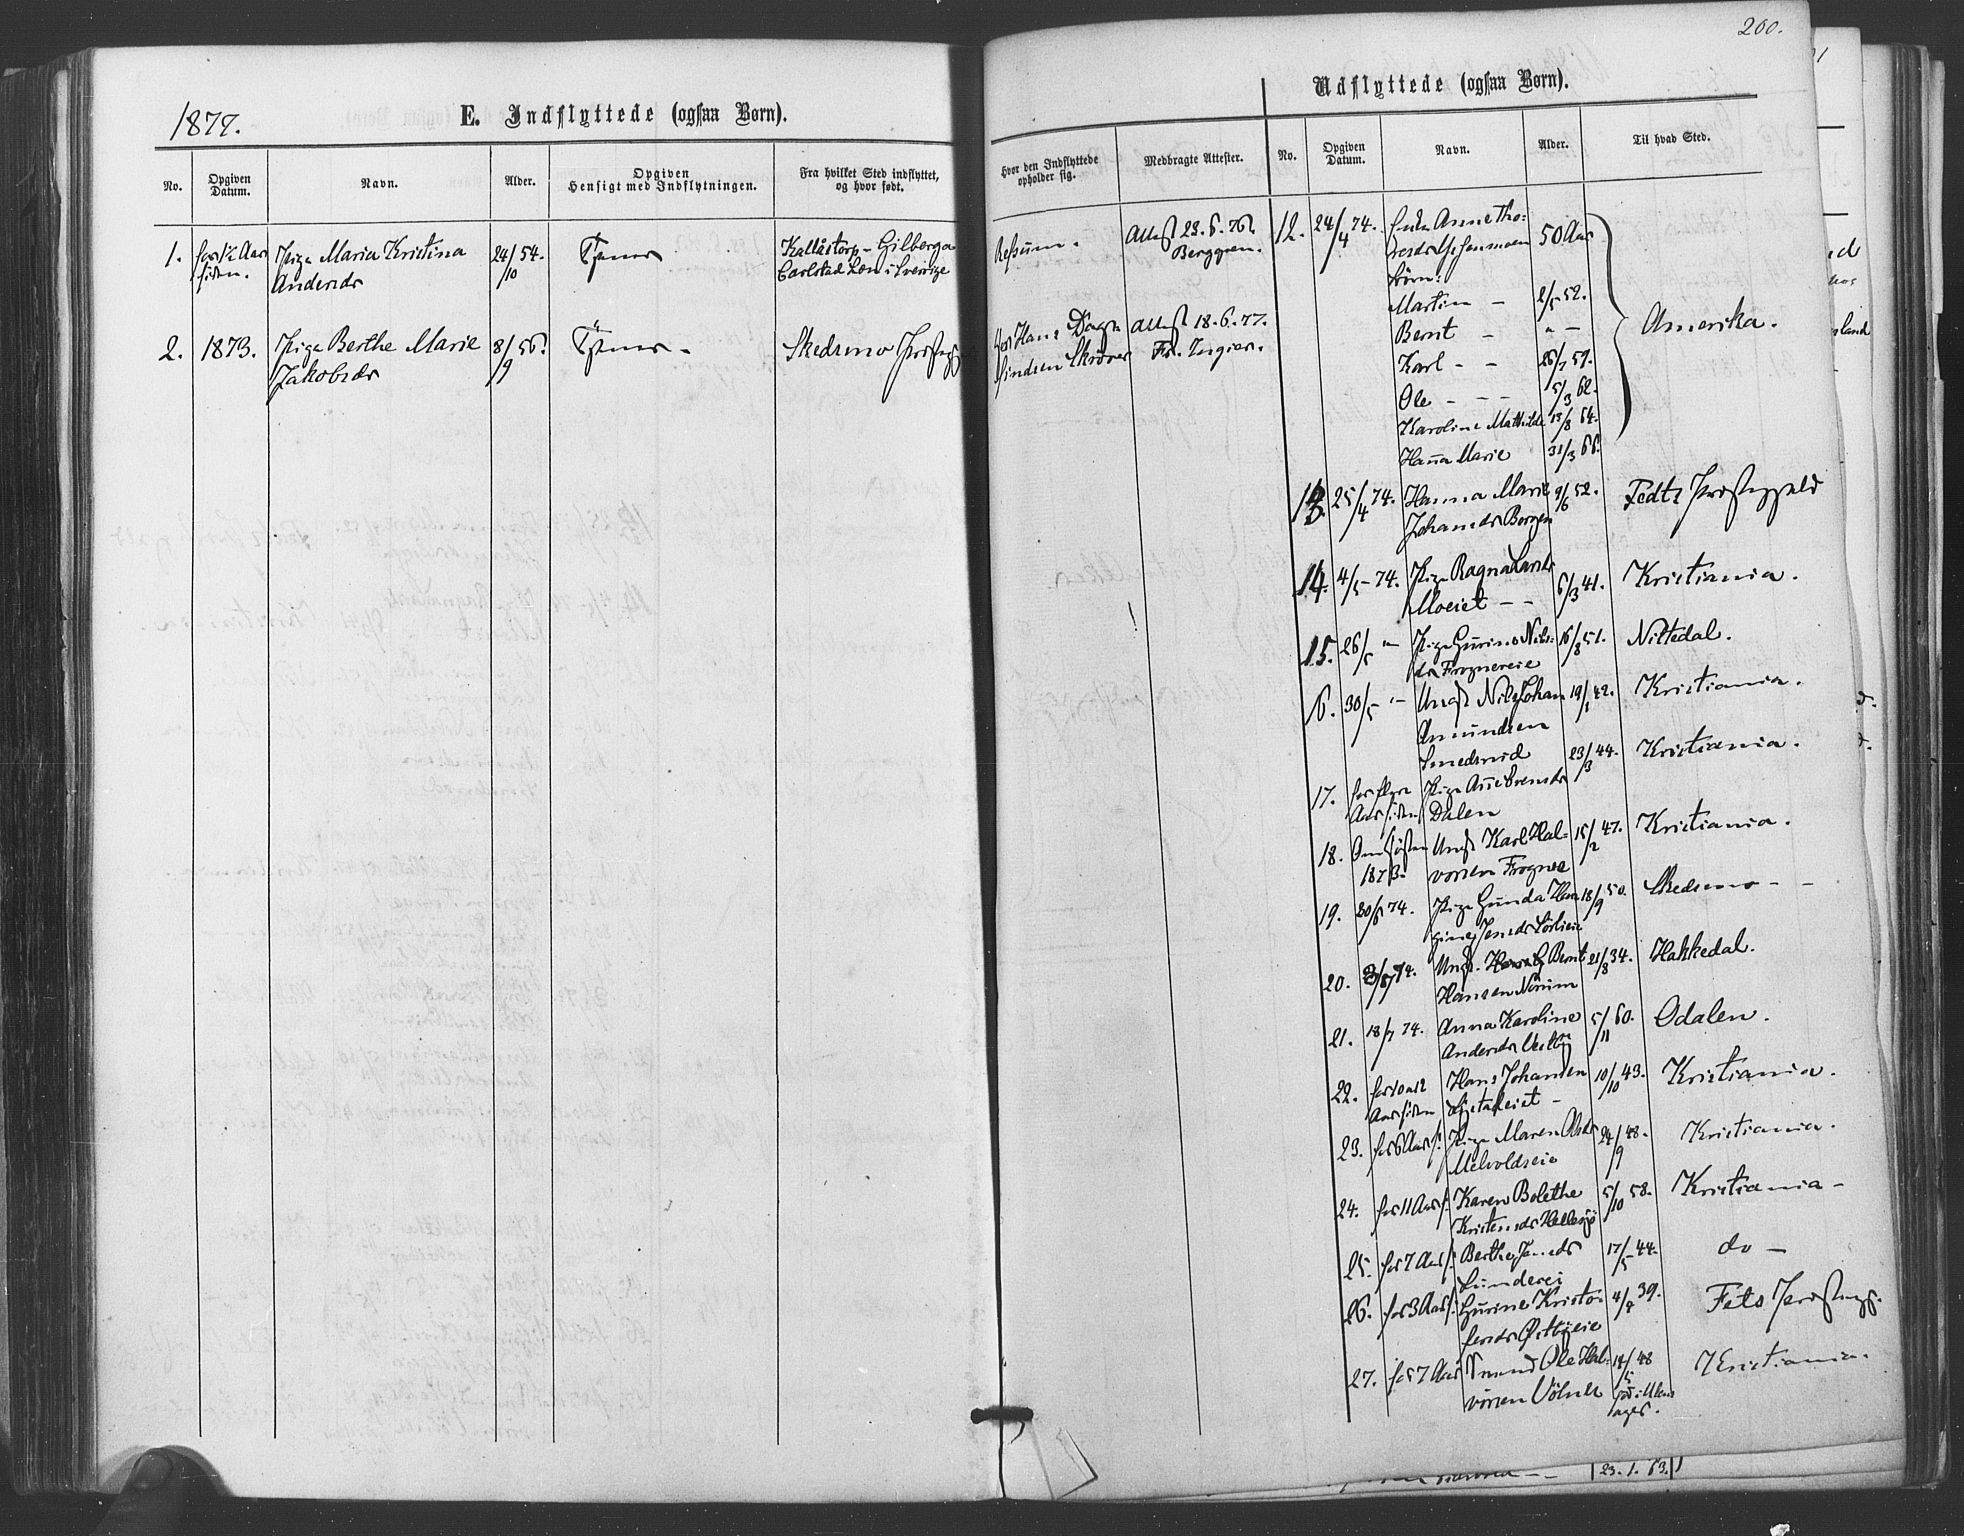 200.
1877.
E. Indflyttede (ogsaa Børn).
No.
Opgiven Datum.
Navn.
Alder.
Opgiven Hensigt med Indflytningen.
Fra hvilket Sted indflyttet, og hvor født.
Hvor den Indflyttede opholder sig.
Medbragte Attester.
1. for ½ Aar Pige Maria Kristina 24/10 54. Tjener Kallåstorp - Gilberga
siden. Andersdr Carlstad Len i Sverrige
Attest 23.6.76.
Berggren.
2. 1873. Pige Berthe Marie 8/9 56. Tjener - Skedsmo Prestegj
Jakobsdr
hos Hans Attest 18.6.77.
Fr. Ingier.
Udflyttede (ogsaa Børn).
No.
Opgiven Datum.
Navn.
Alder.
Til hvad Sted.
12. 24/4 74. Enke Anne Tho= 50 Aar
børn:
Martin - 2/5 52.
Bernt - " -
Karl - - 26/7 57. Amerika.
Ole - - - 5/3 62.
Karoline Mathilde 13/8 64.
Hanna Marie 31/3 66.
13. 25/4 74. Hanna Marie 9/6 52. Fedts Prestegjeld
Johansdr Borgen
14. 4/5 - 74. Pige Ragna Larsdr
Moeiet - - 6/3 41. Kristiania.
15. 26/5 " Pige Gurine Nils= 16/8 51. Nittedal.
dr Frognereie
16. 30/5 " Ungk Nils Johan 19/1 42. Kristiania.
Amundsen
Smedsrud
17. for flere Pige Anne Svensdr 23/3 44. Kristiania.
Aar siden Dalen
18. Om høsten Ungk Karl Hal= 15/2 47. Kristiania.
1873. vorsen Frogner
19. 20/6 74. Pige Gunda Hen 18/9 50. Skedsmo - -
gine Jensdr Sørlieie
20. 3/7 74. Ungk. Bernt 21/8 34. Hakkedal.
Hansen Nærum
21. 18/7 74. Anna Karoline 5/11 60. Odalen.
Andersdr Vestby
22. for 10 a 12 Hans Johansen 10/10 43. Kristiania.
Aar siden
23. for 6 Aar s. Pige Maren Olsdr 24/9 48. Kristiania.
Melvoldseie
24. for 11 Aar s. Karen Bolethe 5/10 58. Kristiania -
Kristensdr Hellesjø
25. for 7 Aar s. Berthe Jensdr 17/5 44. do -
Lunderei
26. for 3 Aar s. Gurine Kristo= 4/8 39. Fets Prestegj.
fersdr Østbyeie
27. for 7 Aar Smed Ole Hal= 14/5 48 Kristiania.
vorsen Vølner
23.1.63.